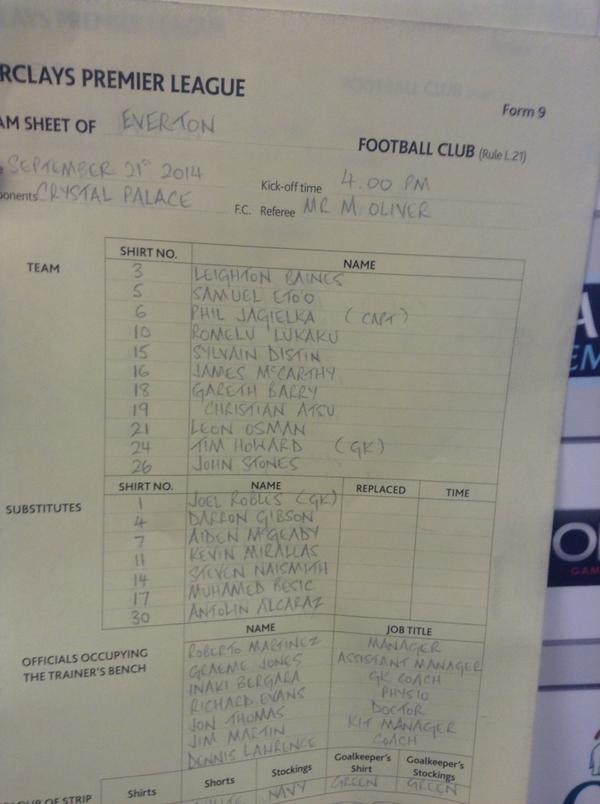 RCLAYS PREMIER LEAGUE
Form 9
AM SHEET OF EVERTON
FOOTBALL CLUB (Rule L.21)
SEPTEMBER 21st 2014
Kick-off time 4.00 PM
ponents CRYSTAL PALACE
F.C. Referee MR M OLIVER
TEAM
SHIRT NO. NAME
3 LEIGHTON BAINES
5 SAMUEL ETO'O
6 PHIL JAGIELKA (CAPT)
10 ROMELU LUKAKU
15 SYLVAIN DISTIN
16 JAMES McCARTHY
18 GARETH BARRY
19 CHRISTIAN ATSU
21 LEON OSMAN
24 TIM HOWARD (GK)
26 JOHN STONES
SUBSTITUTES
SHIRT NO. NAME REPLACED TIME
1 JOEL ROBLES (GK)
4 DARRON GIBSON
7 AIDEN McGEADY
11 KEVIN MIRALLAS
14 STEVEN NAISMITH
17 MUHAMED BESIC
30 ANTOLIN ALCARAZ
OFFICIALS OCCUPYING
THE TRAINER'S BENCH
NAME JOB TITLE
ROBERTO MARTINEZ MANAGER
GRAEME JONES ASSISTANT MANAGER
INAKI BERGARA GK COACH
RICHARD EVANS PHYSIO
JON THOMAS DOCTOR
JIM MARTIN KIT MANAGER
DENNIS LAWRENCE COACH
OUR OF STRIP
Shirts Shorts Stockings Goalkeeper's Shirt Goalkeeper's Stockings
WHITE NAVY GREEN GREEN